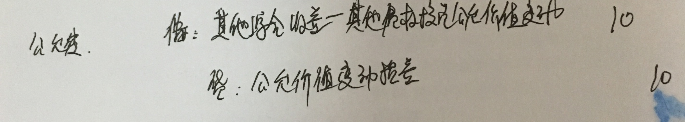 公允变. 借：其他综合收益—其他债权投资公允价值变动 10
贷：公允价值变动损益 10